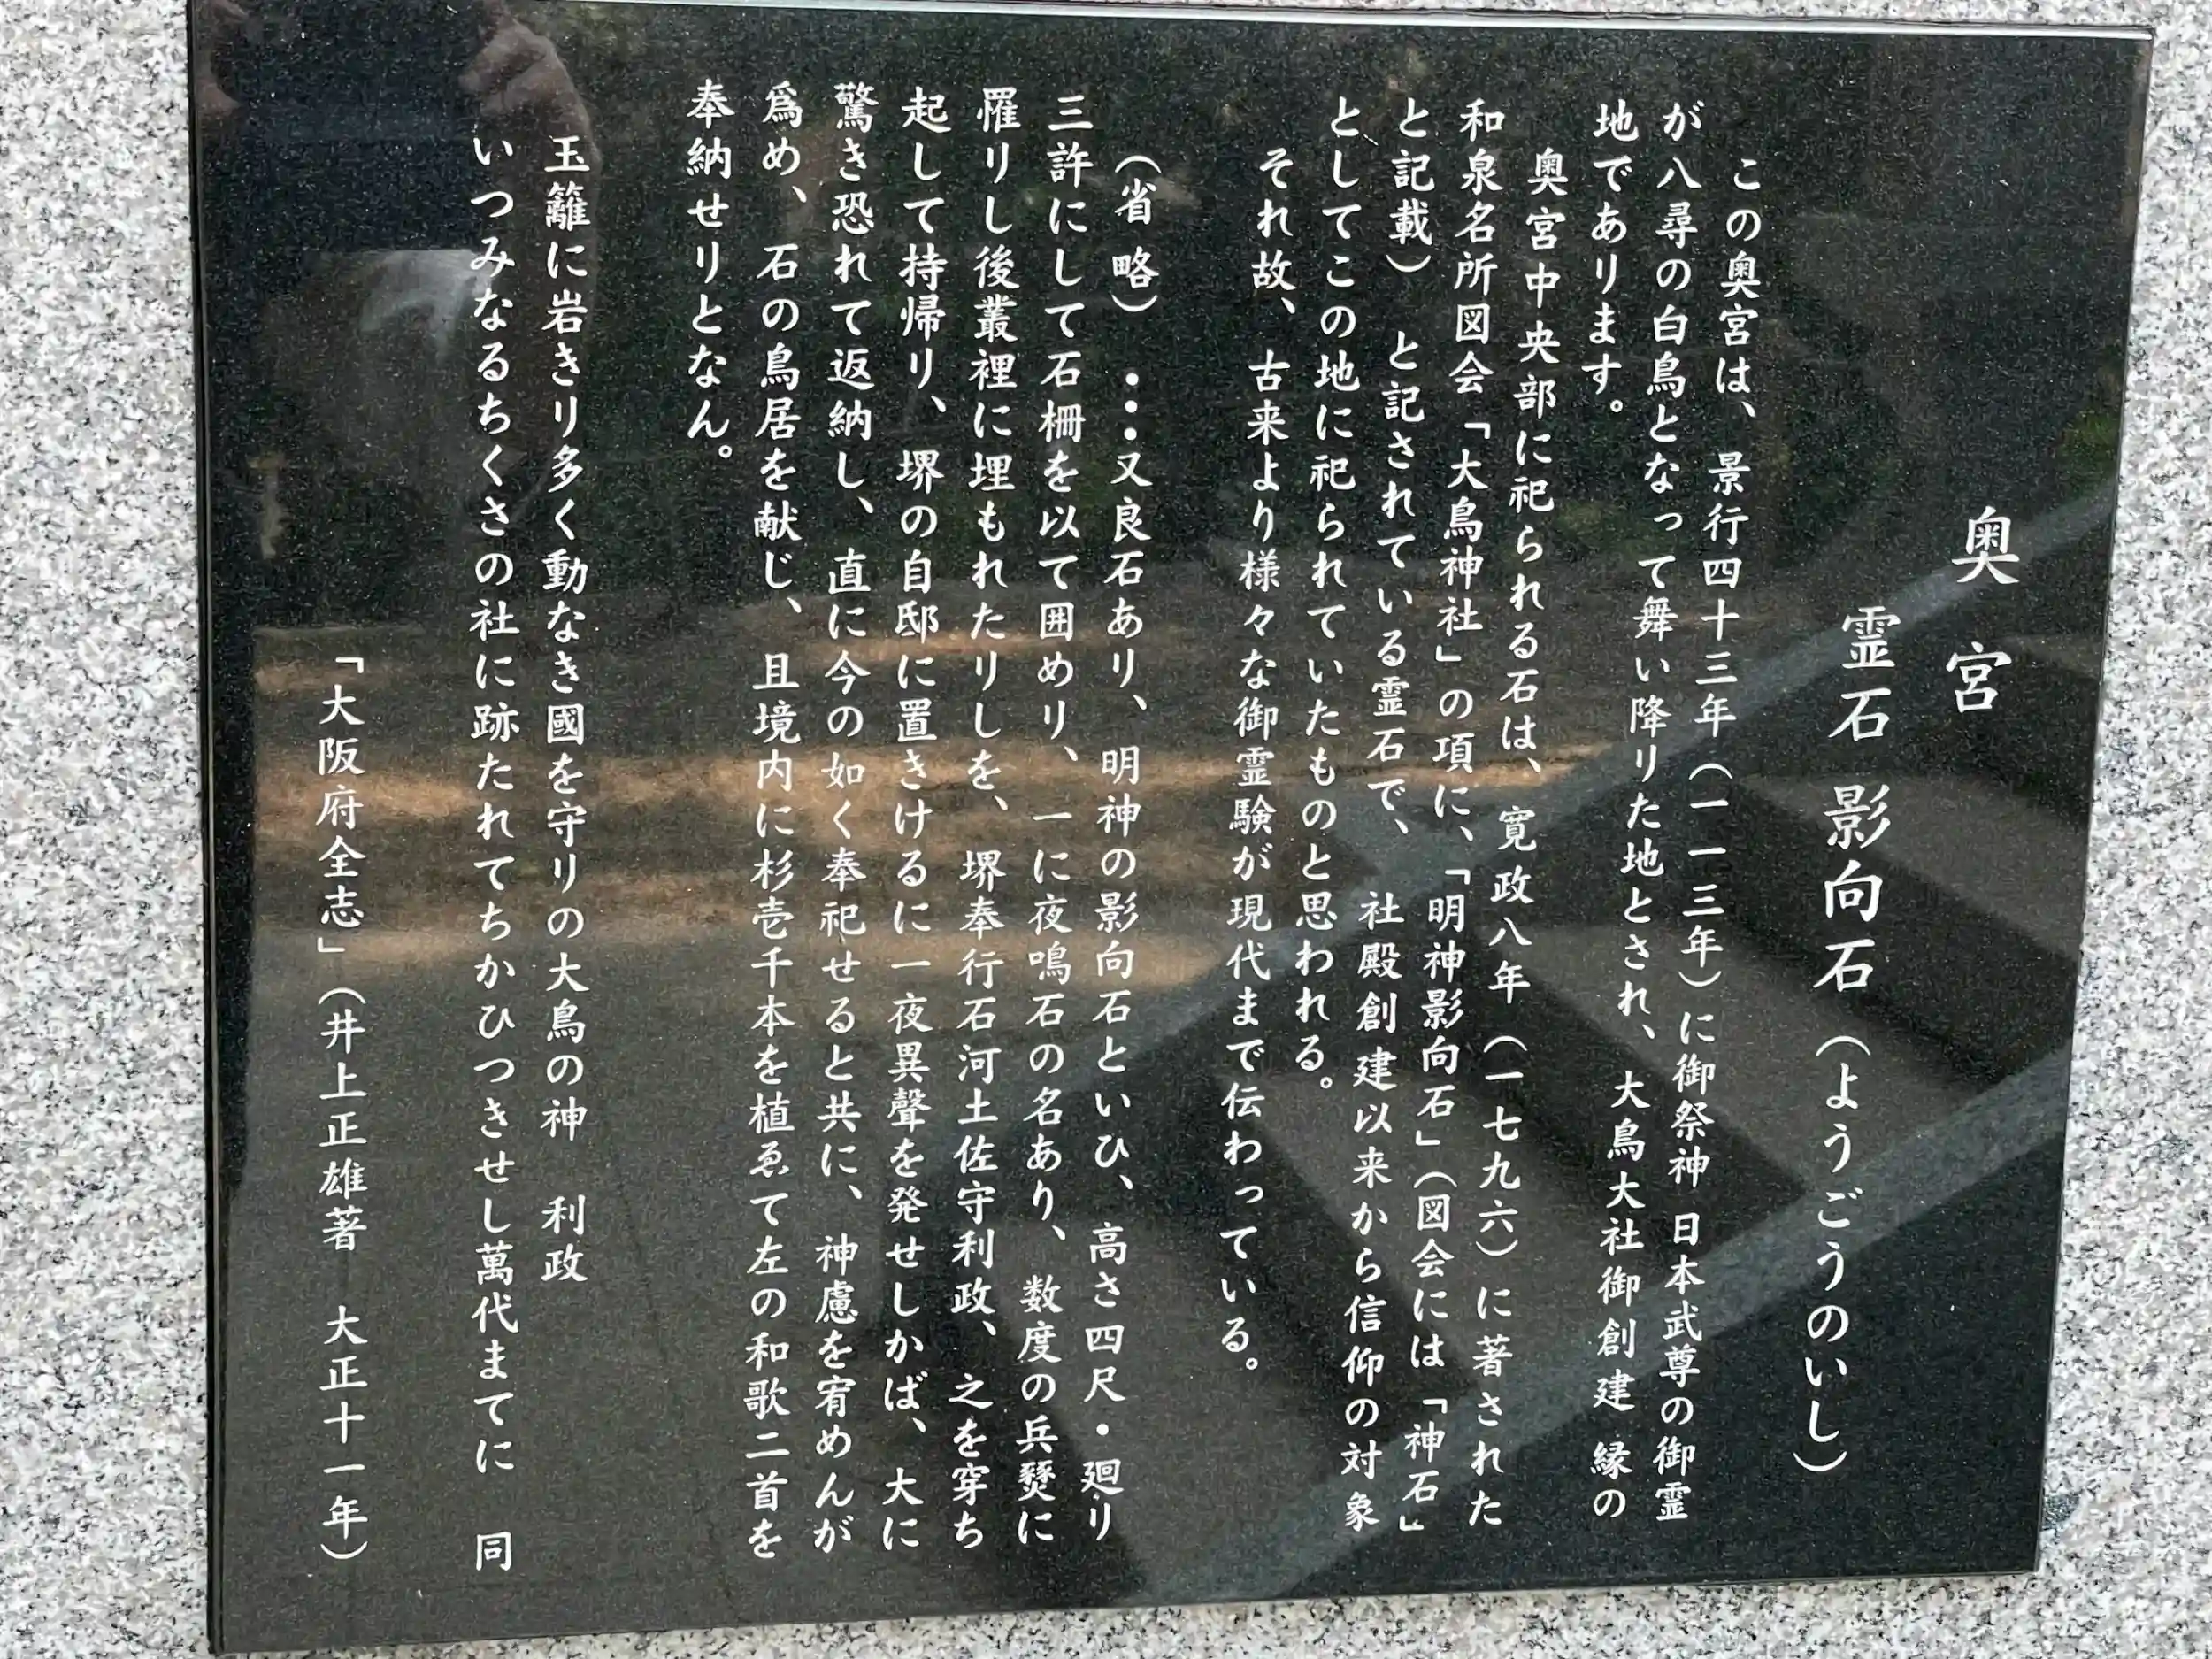 奥宮
霊石 影向石（ようごうのいし）
この奥宮は、景行四十三年（一一三年）に御祭神 日本武尊の御霊
が八尋の白鳥となって舞い降りた地とされ、大鳥大社御創建 縁の
地であります。
奥宮中央部に祀られる石は、寛政八年（一七九六）に著された
和泉名所図会「大鳥神社」の項に、「明神影向石」（図会には「神石」
と記載）と記されている霊石で、社殿創建以来から信仰の対象
としてこの地に祀られていたものと思われる。
それ故、古来より様々な御霊験が現代まで伝わっている。
（省略）・・・又良石あり、明神の影向石といひ、高さ四尺・廻り
三許にして石柵を以て囲めり、一に夜鳴石の名あり、数度の兵燹に
罹りし後叢裡に埋もれたりしを、堺奉行石河土佐守利政、之を穿ち
起して持帰り、堺の自邸に置きけるに一夜異聲を発せしかば、大に
驚き恐れて返納し、直に今の如く奉祀せると共に、神慮を宥めんが
爲め、石の鳥居を献じ、且境内に杉壱千本を植ゑて左の和歌二首を
奉納せりとなん。
玉籬に岩きり多く動なき國を守りの大鳥の神 利政
いつみなるちくさの社に跡たれてちかひつきせし萬代まてに 同
「大阪府全志」（井上正雄著 大正十一年）